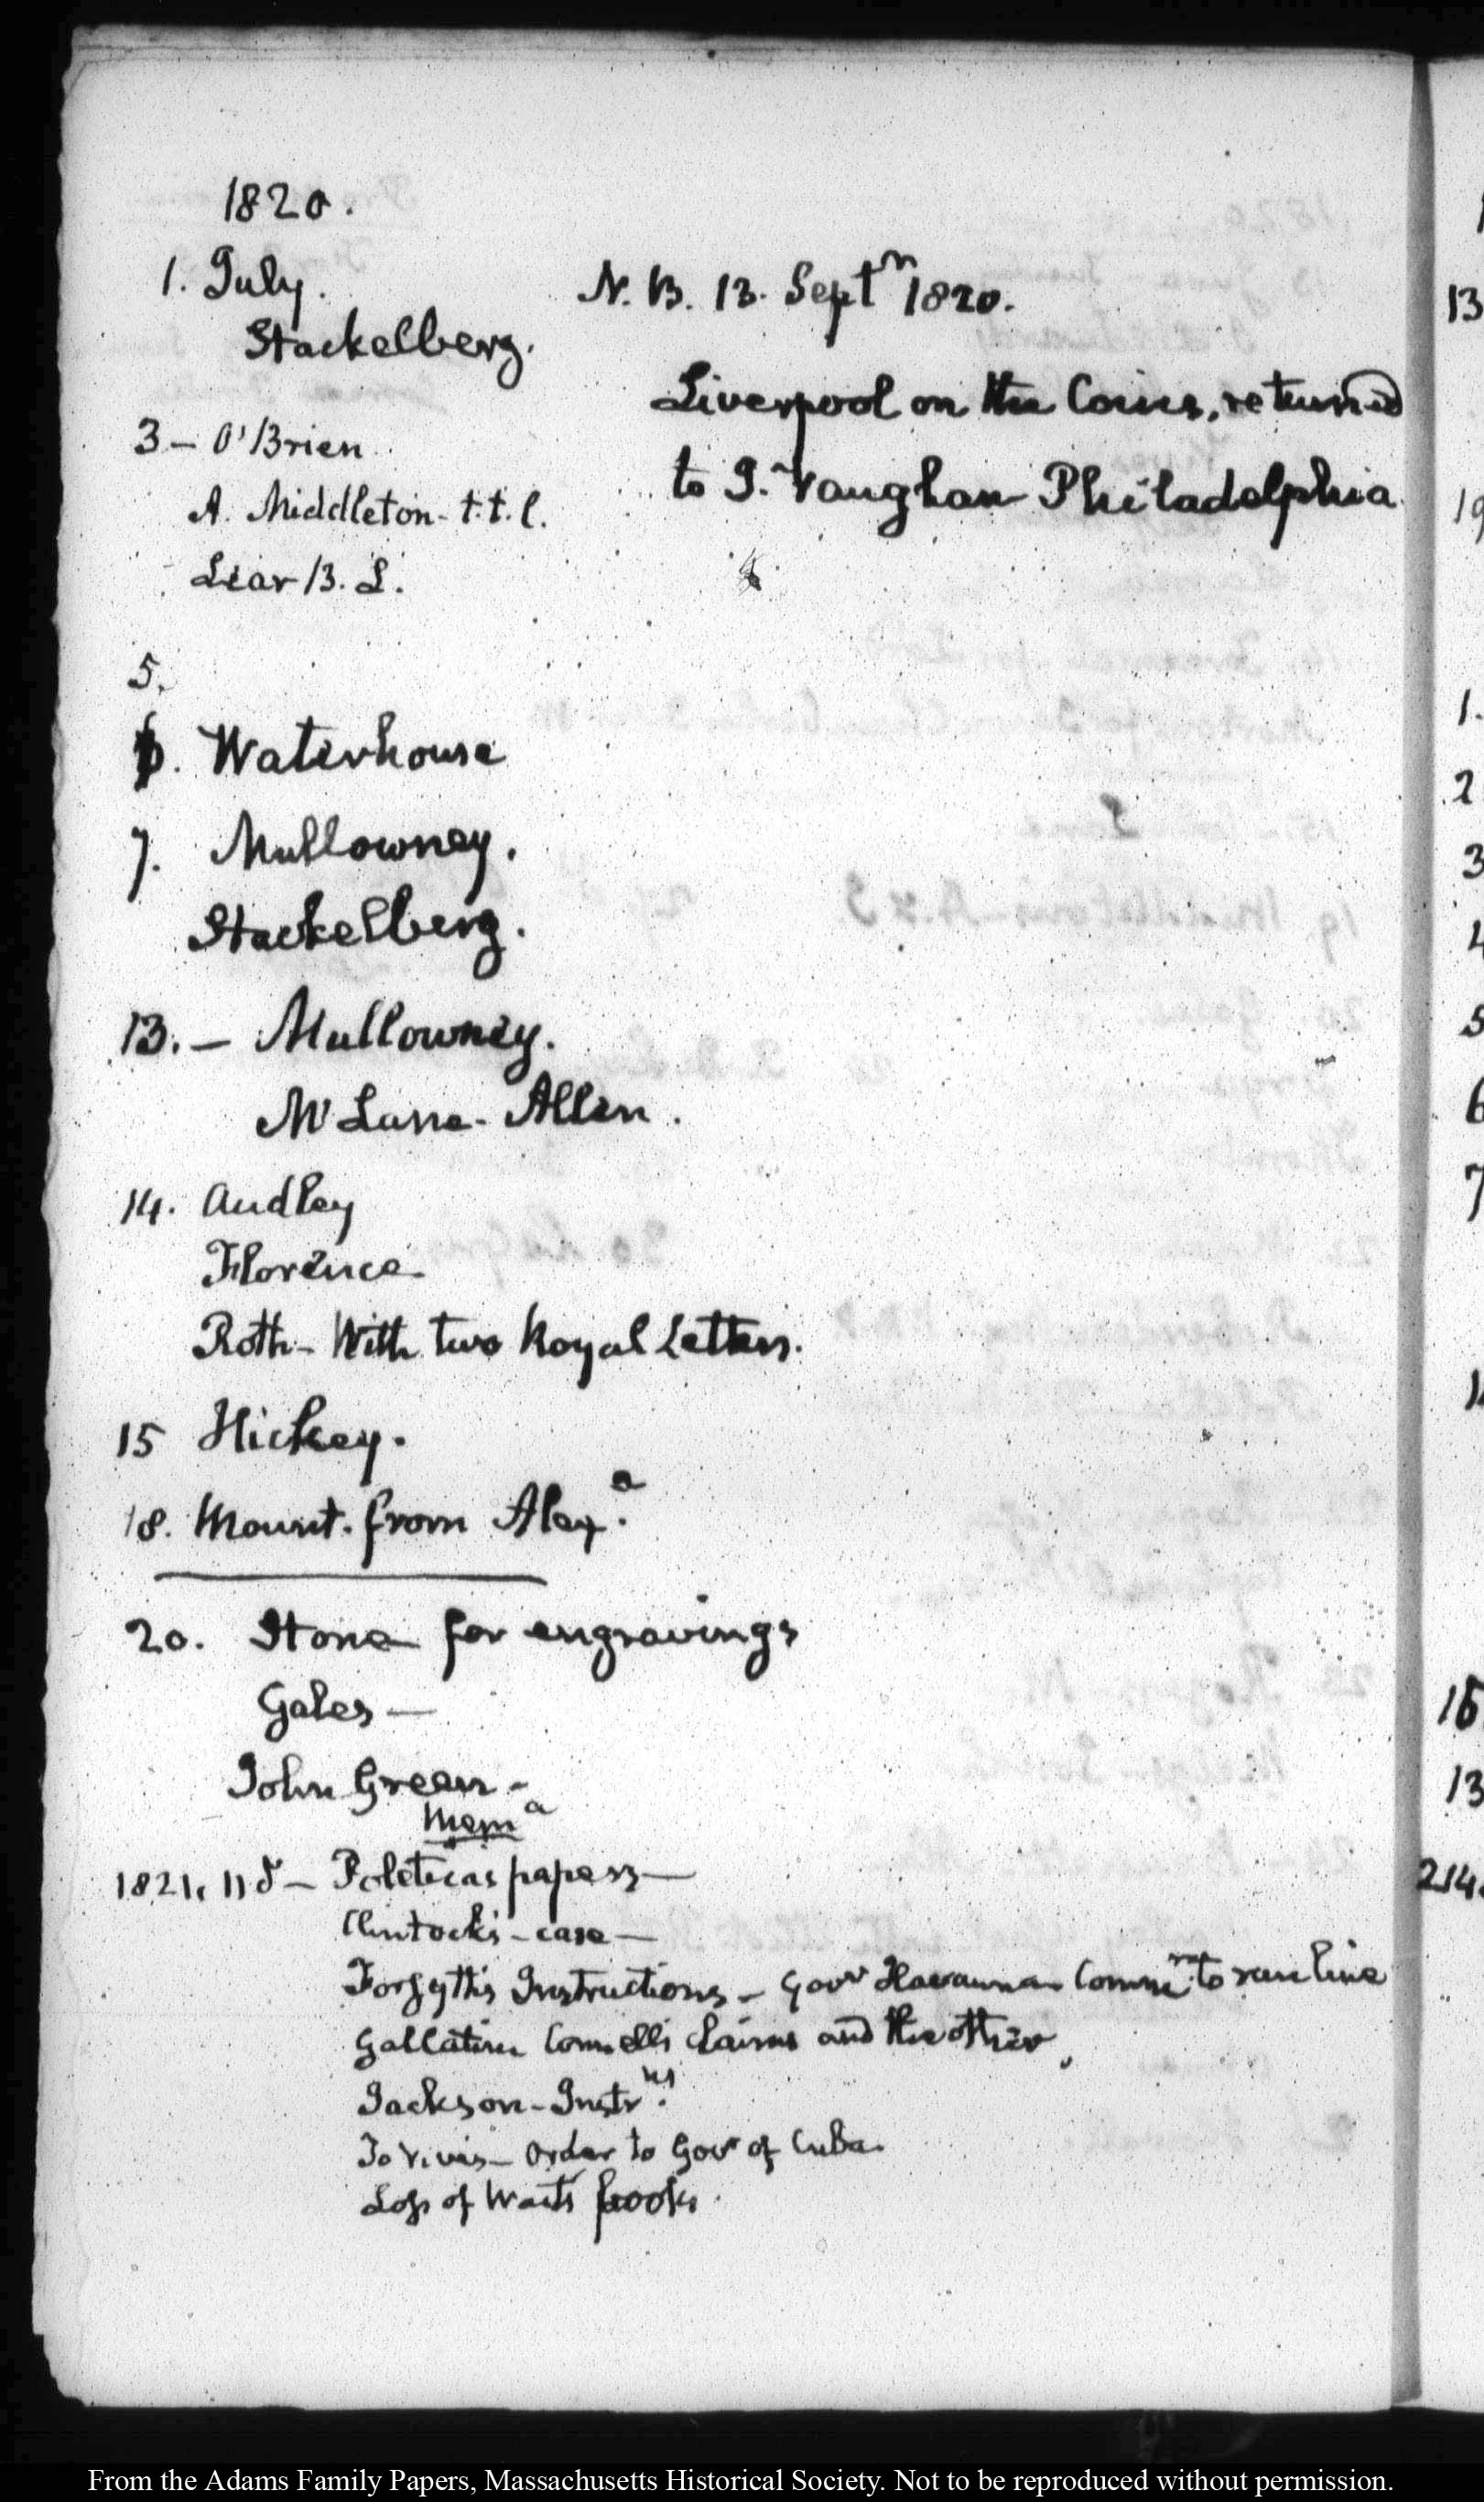 1820.
1. July.
Stackelberg.
N. B. 13. Septr 1820.
Liverpool on the Coins, returned
to J. Vaughan Philadelphia
3 — O'Brien
A. Middleton - t. t. l.
Lear B. L.
5.
6. Waterhouse
7. Mullowney.
Stackelberg.
13. — Mullowney.
McLane - Allen.
14. Audley
Florence
Roth - With two Royal Letters.
15 Hickey.
18. Mount. from Alexa.
20. Stone for engravings
Gales —
John Green -
Mema
1821. — Poleticas papers —
Clintock's - case —
Forsyth's Instructions - Govr Havanna Commr to run line
Gallatin Connell's claims and the other
Jackson - Instrns.
To Vives - Order to Govr of Cuba.
Loss of Wait's books.
13
1.
2
3
4
5
6
7
16
13
214
From the Adams Family Papers, Massachusetts Historical Society. Not to be reproduced without permission.